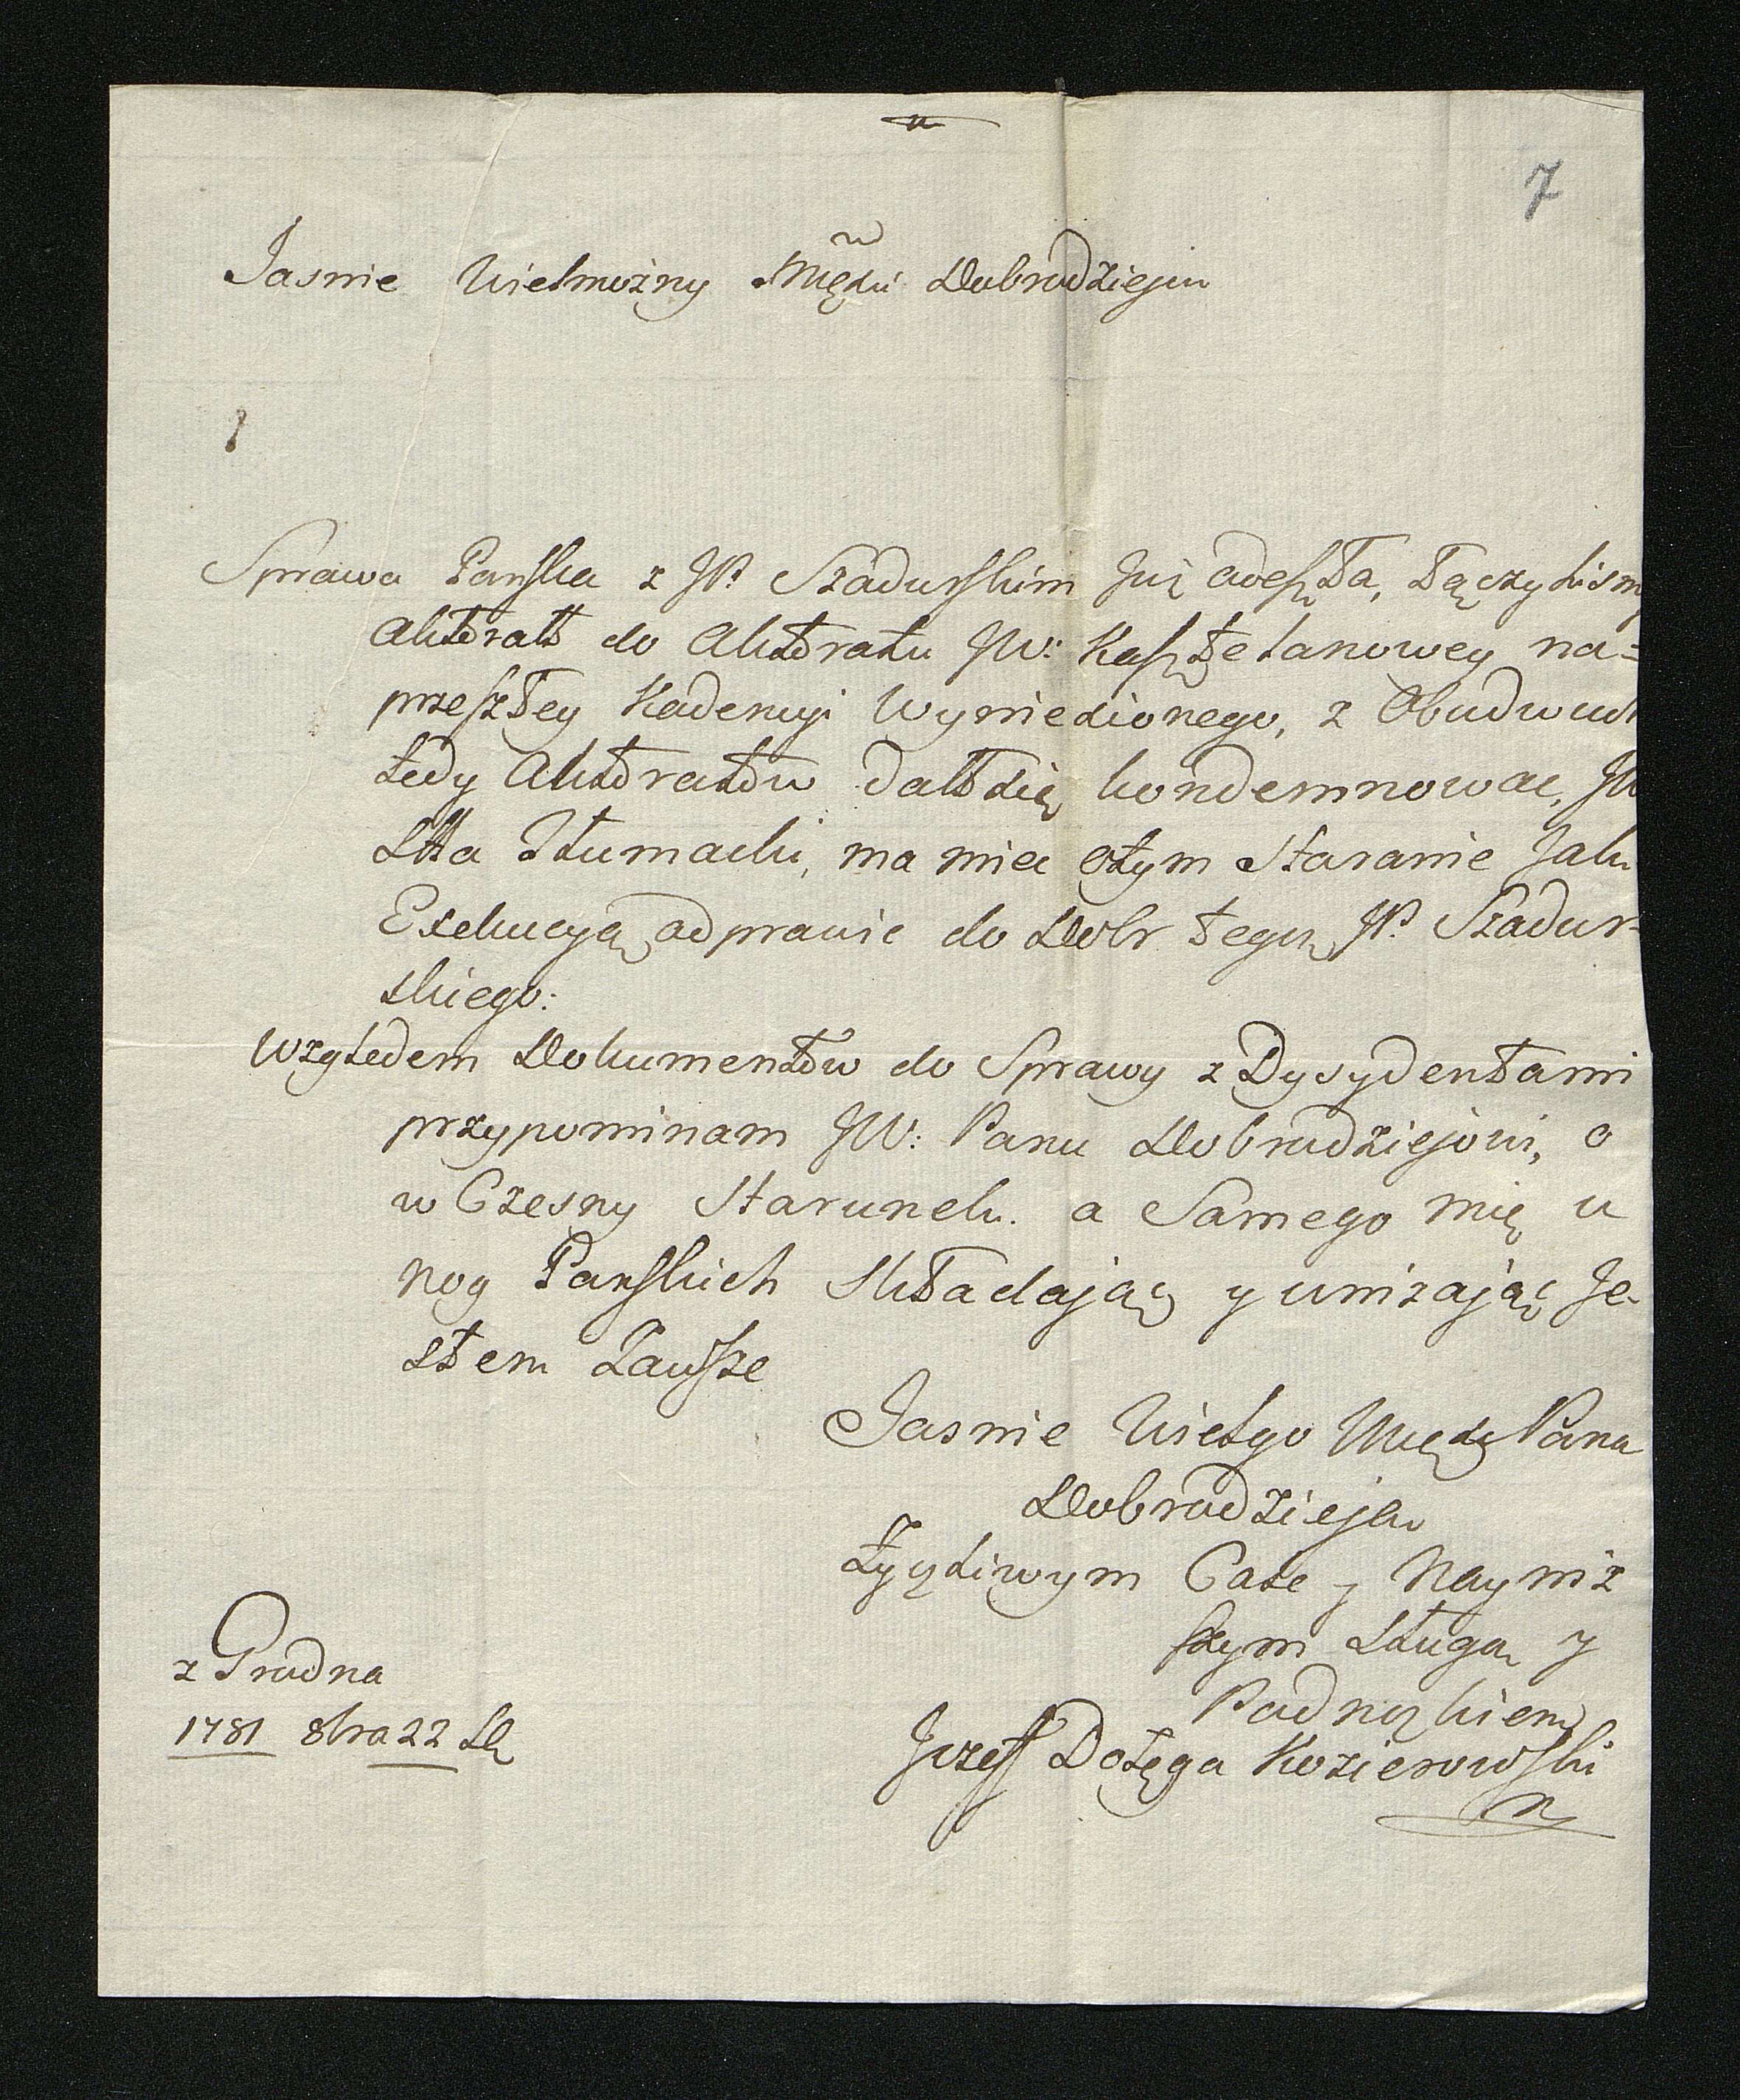 7
Jasnie Wielmożny Mści Dobrodzieju
Sprawa Pańska z JP. Szadurskim Już adeszła, Łączylism
Aktorat do Aktoratu JW: Kasztelanowey na=
przeszłey Kadencyi Wyniesionego, z Obudwuch
tedy Aktoratow dał się kondemnowac, JW
Stta Tłumacki, ma miec otym Staranie Jak
Exekucyą adprawic do Dobr tegoż JP. Szadur-
skiego:
Względem Dokumentow do Sprawy z Dysydentami
przypominam JW: Panu Dobrodziejowi, o
wCzesny Starunek. a Samego mię u
nog Panskich Składając y unizając Je-
stem Zawsze
Jasnie Wielgo Mści Pana
Dobrodzieja
Życzliwym Cale y Nayniż
szym Sługą y
Padnożkiem
Jozeff Dołęga Kozierowski
z Grodna
1781 8bra 22